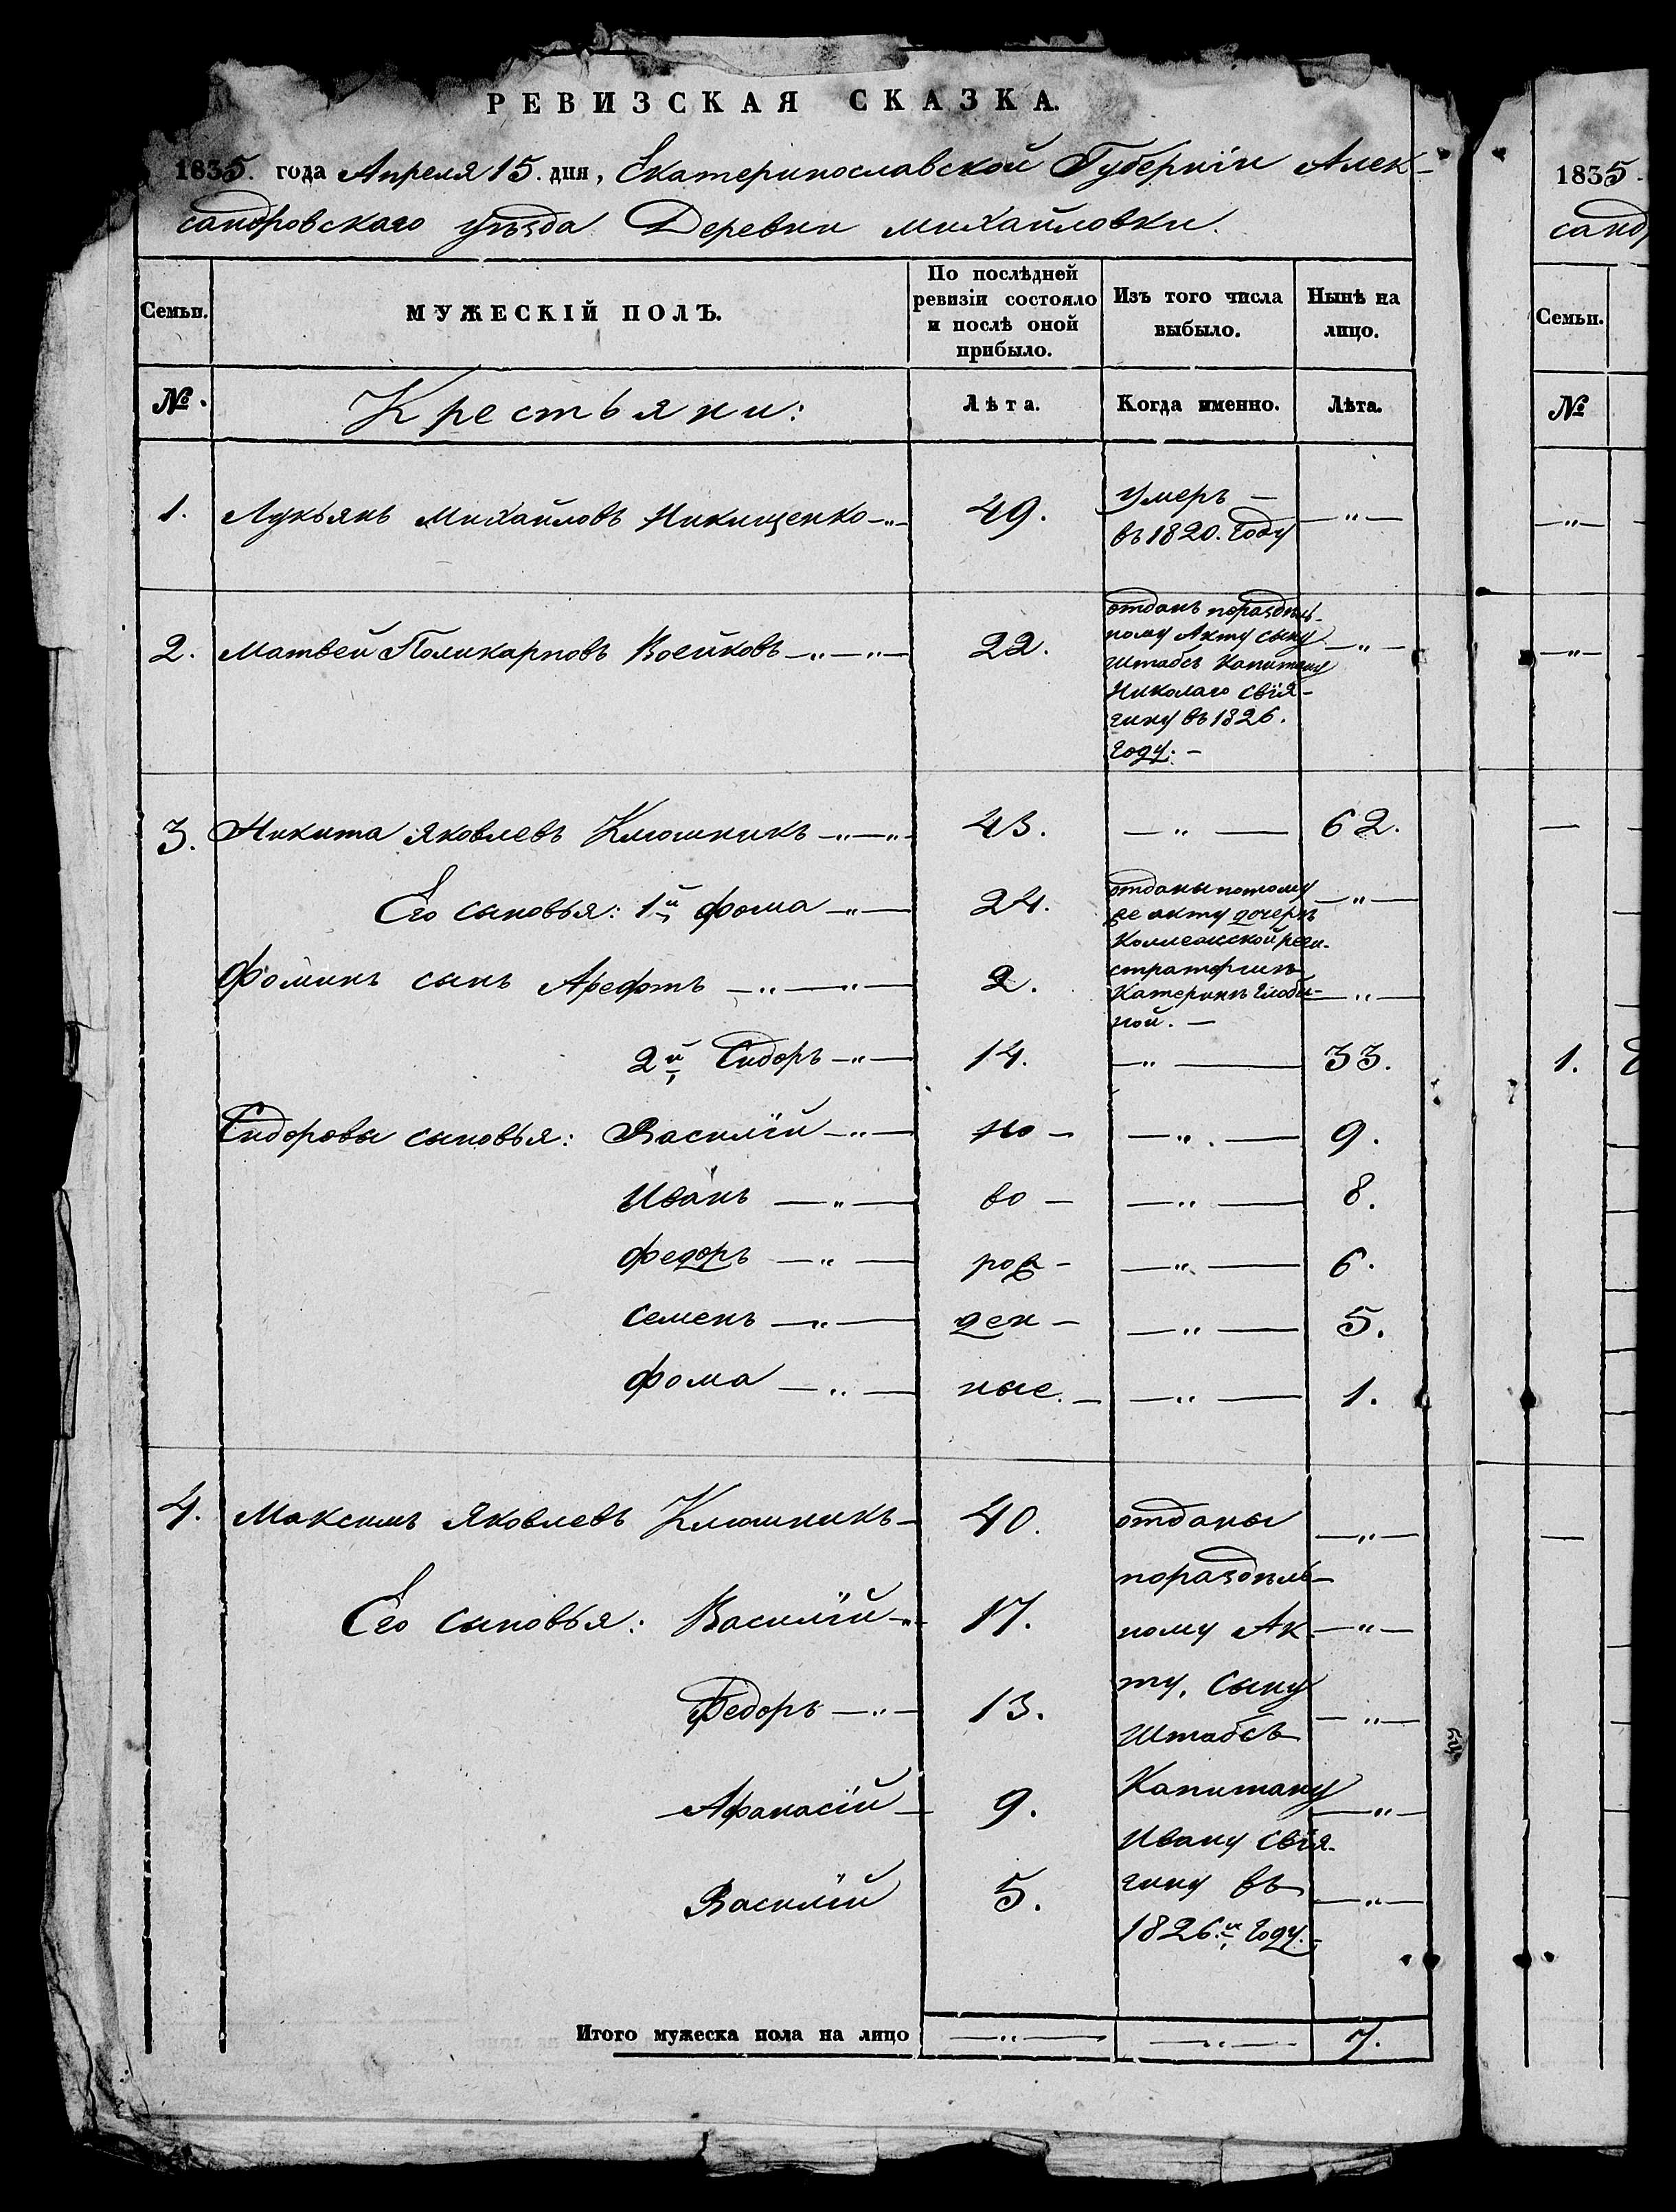 РЕВИЗСКАЯ СКАЗКА.
1835. года Апреля 15. дня, Екатеринославской Губерніи Алек-
сандровскаго уѣзда Деревни михайловки.
Семьи.
МУЖЕСКІЙ ПОЛЪ.
По послѣдней ревизіи состояло и послѣ оной прибыло.
Изъ того числа выбыло.
Нынѣ на лицо.
№.
Крестьяни:
Лѣта.
Когда именно.
Лѣта.
1. Лукьянъ Михайловъ Никищенко —"— 49. умеръ — —"—
въ 1820. Году
2. Матвей Поликарповъ Воейковъ —"—"— 22. —"—
отданъ поразделъ-
ному Акту сыну
Штабсъ Капитану
Николаю Свія-
гину въ 1826.
Году. —
3. Никита Яковлевъ Клюшникъ —"—"— 43. —"— 62.
Его сыновья: 1й фома —"— 24. —"—
отданы потому
же акту дочери
Коллежской реги-
страторши
Катеринѣ Глоби-
ной. —
Фоминъ сынъ Арефтъ —"—"— 2. —"—
2й Сидоръ —"— 14. —"— 33.
Сидоровы сыновья: Василій —"— но — —"— 9.
Иванъ —"— во — —"— 8.
федоръ —"— рож — —"— 6.
Семенъ —"— ден — —"— 5.
фома —"— ные. — —"— 1.
4. Максимъ Яковлевъ Клюшникъ — 40. отданы —"—
поразделъ-
Его сыновья: Василій —"— 17. ному Ак —"—
ту, Сыну
Федоръ —"— 13. —"—
Штабсъ
Капитану
Афанасій — 9. —"—
Ивану Свія-
гину въ
Василій 5. —"—
1826.м Году. —
Итого мужеска пола на лицо —"— —"— 7.
1835.
санд
Семьи.
№
—"—
—"—
—
1.
—